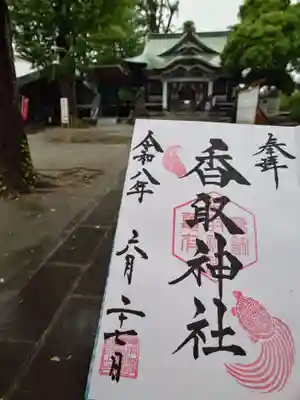 奉拝
香取神社
令和八年
六月二十七日